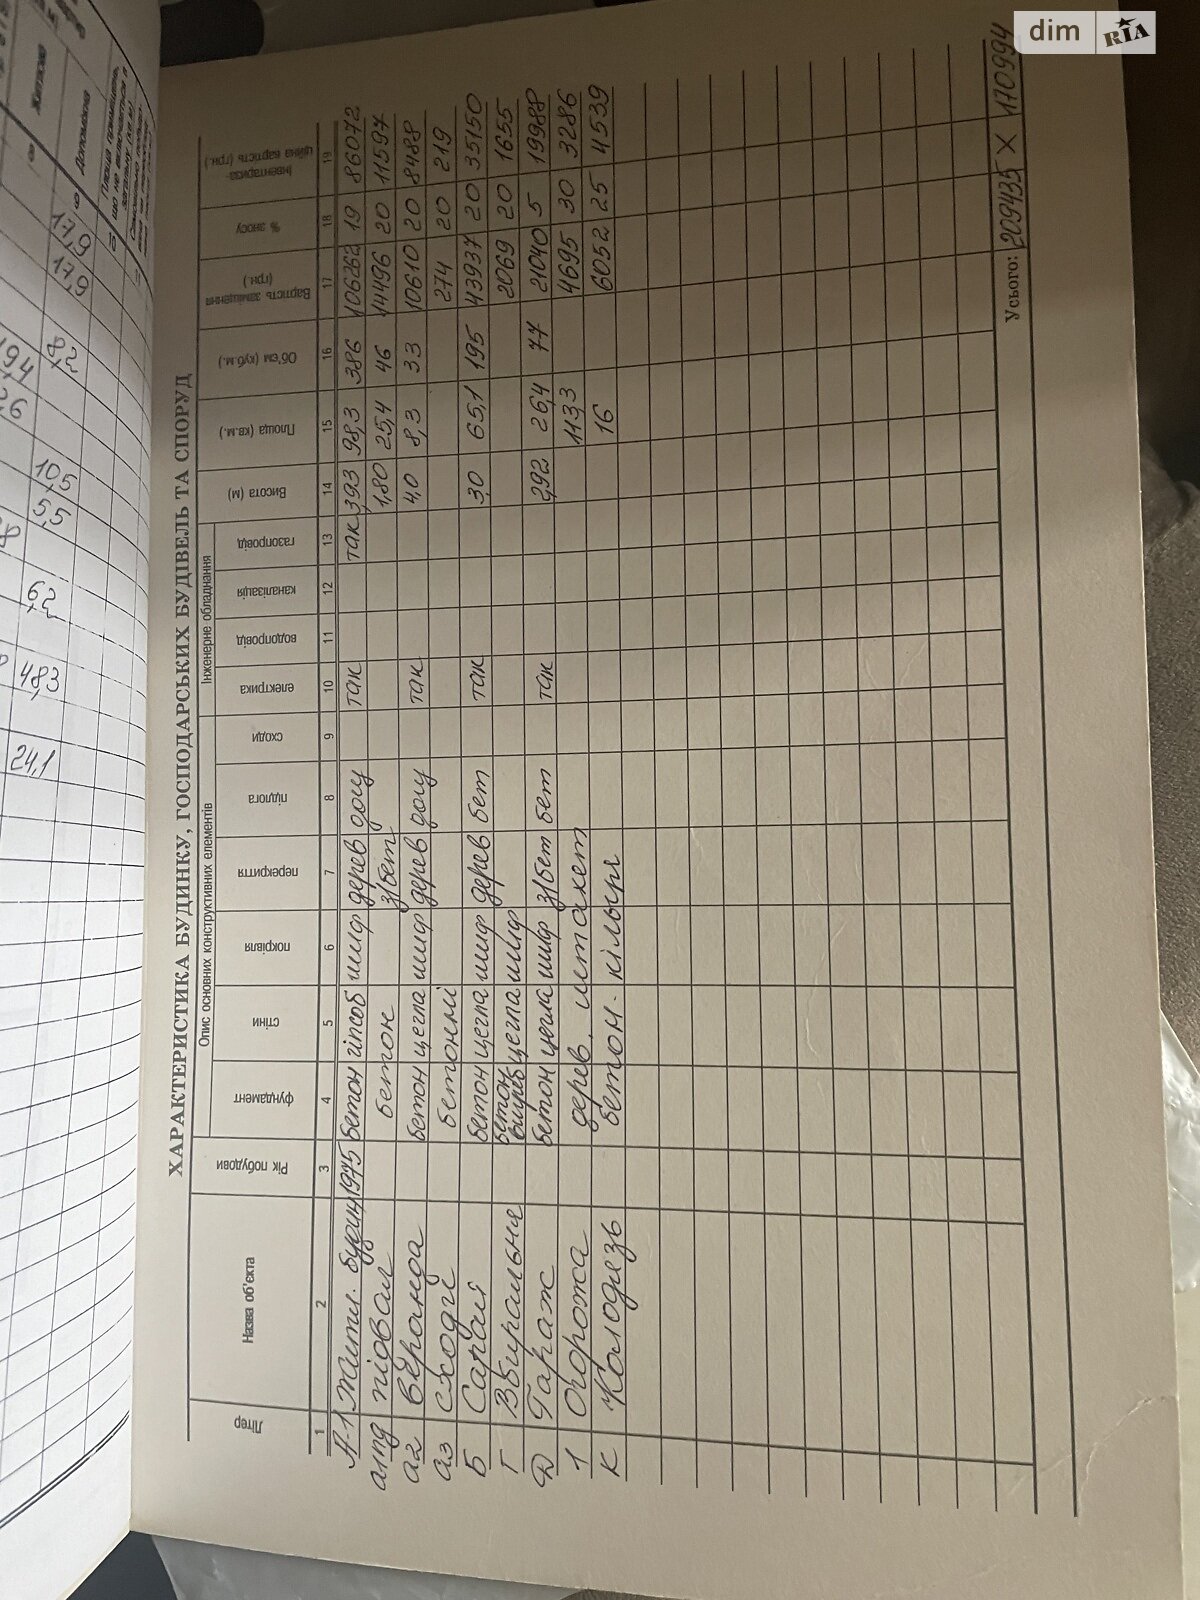 dim RIA
ХАРАКТЕРИСТИКА БУДИНКУ, ГОСПОДАРСЬКИХ БУДІВЕЛЬ ТА СПОРУД
Опис основних конструктивних елементів Інженерне обладнання
Літер Назва об'єкта Рік побудови фундамент стіни покрівля перекриття підлога сходи електрика водопровід каналізація газопровід Висота (м) Площа (кв.м.) Об'єм (куб.м.) Вартість заміщення (грн.) % зносу Інвентариза-ційна вартість (грн.)
1 2 3 4 5 6 7 8 9 10 11 12 13 14 15 16 17 18 19
А-1 Житл. будин 1975 бетон гіпсоб шиф дерев дощ так так 3,93 98,3 386 106262 19 86072
апд підвал бетон з/бет 1,80 25,4 46 14496 20 11597
а2 веранда бетон цегла шиф дерев дощ так 4,0 8,3 33 10610 20 8488
а3 сходи бетонні 274 20 219
Б Сарай бетон цегла шиф дерев бет так 3,0 65,1 195 43937 20 35150
Г Вбиральня бетон цегла шиф 2069 20 1655
Д Гараж бетон цегла шиф з/бет бет так 2,92 26,4 77 21040 5 19988
1 Огорожа дерев. штакет 113,3 4695 30 3286
К Колодязь бетон. кільця 16 6052 25 4539
Усього: 209435 X 170994
Житлова
Допоміжна
17,9
17,9
8,2
10,5
5,5
6,2
48,3
24,1